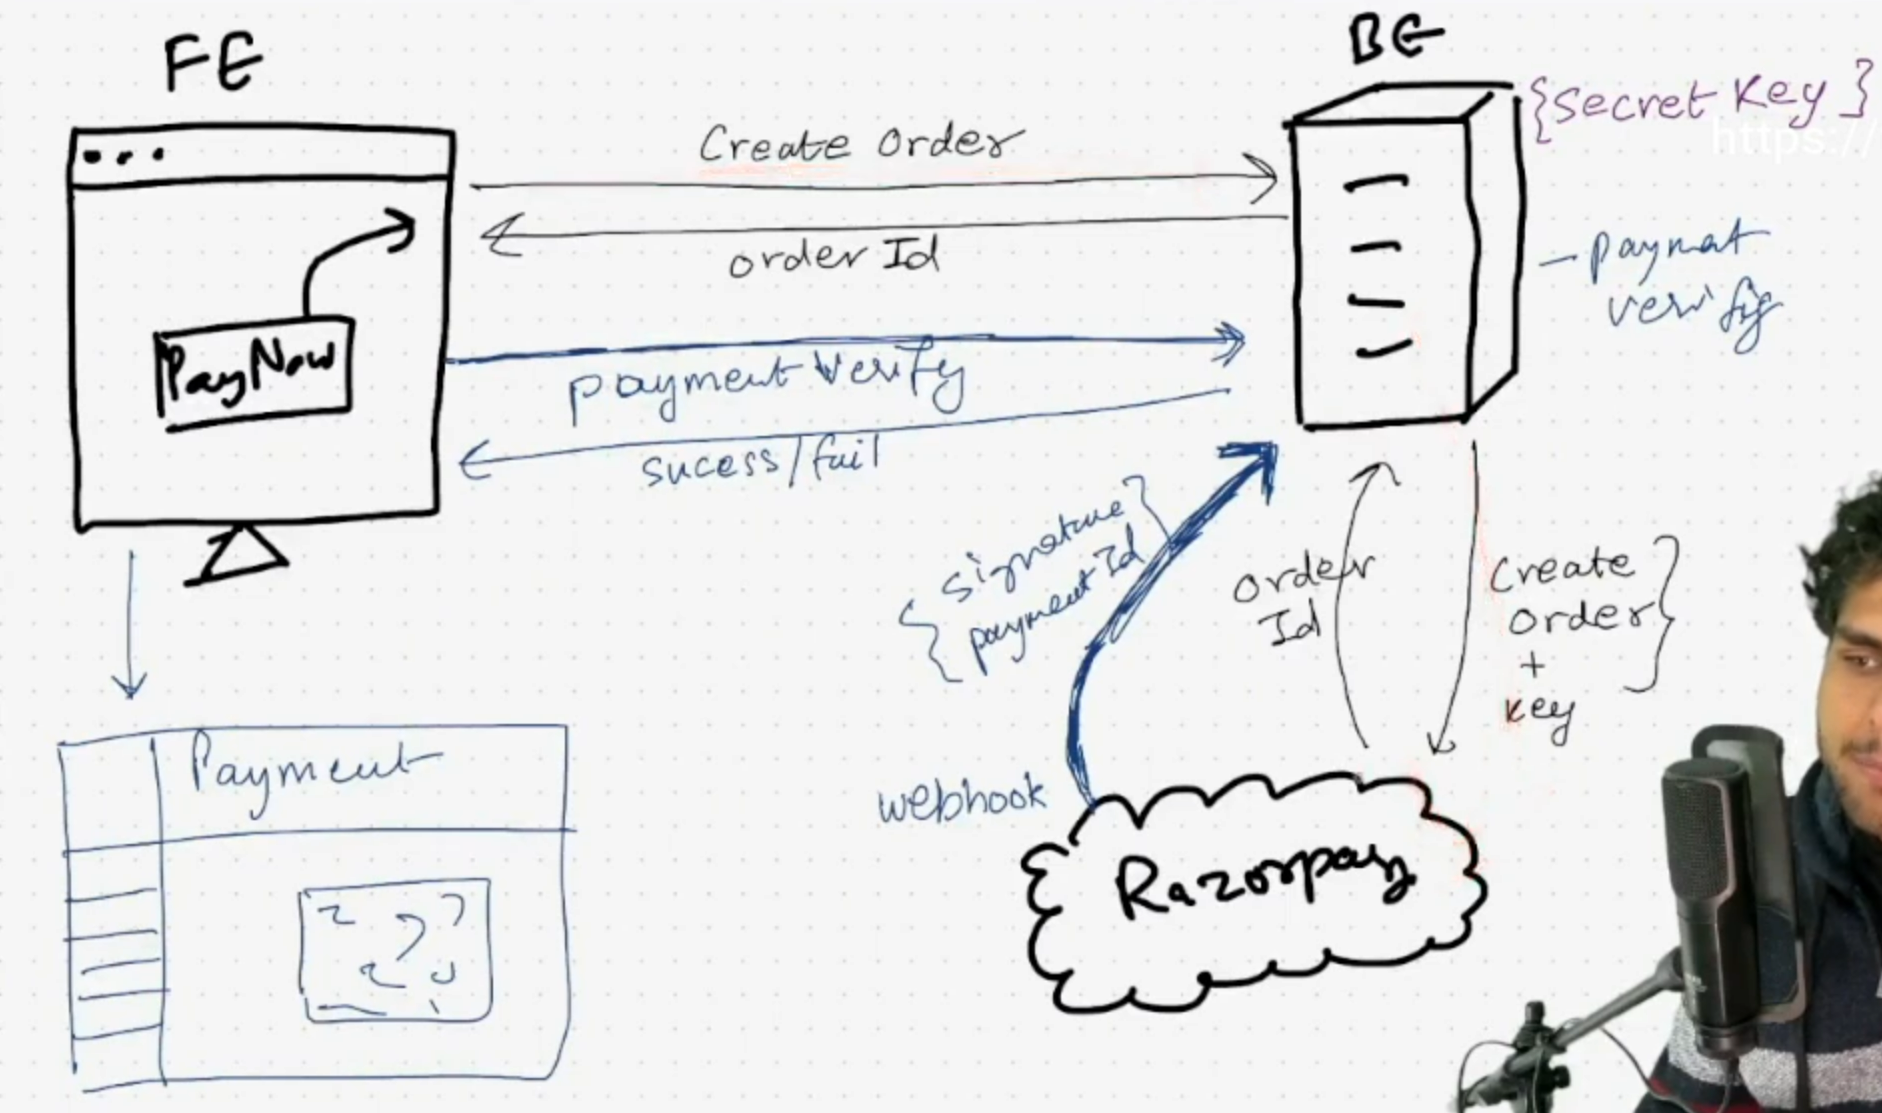 FE
BE
{Secret Key}
https://
Create Order
order Id
- paymat
verify
PayNow
payment Verify
sucess/fail
{ signature
payment Id }
order
Id
Create
order
+
key }
webhook
Razorpay
Payment